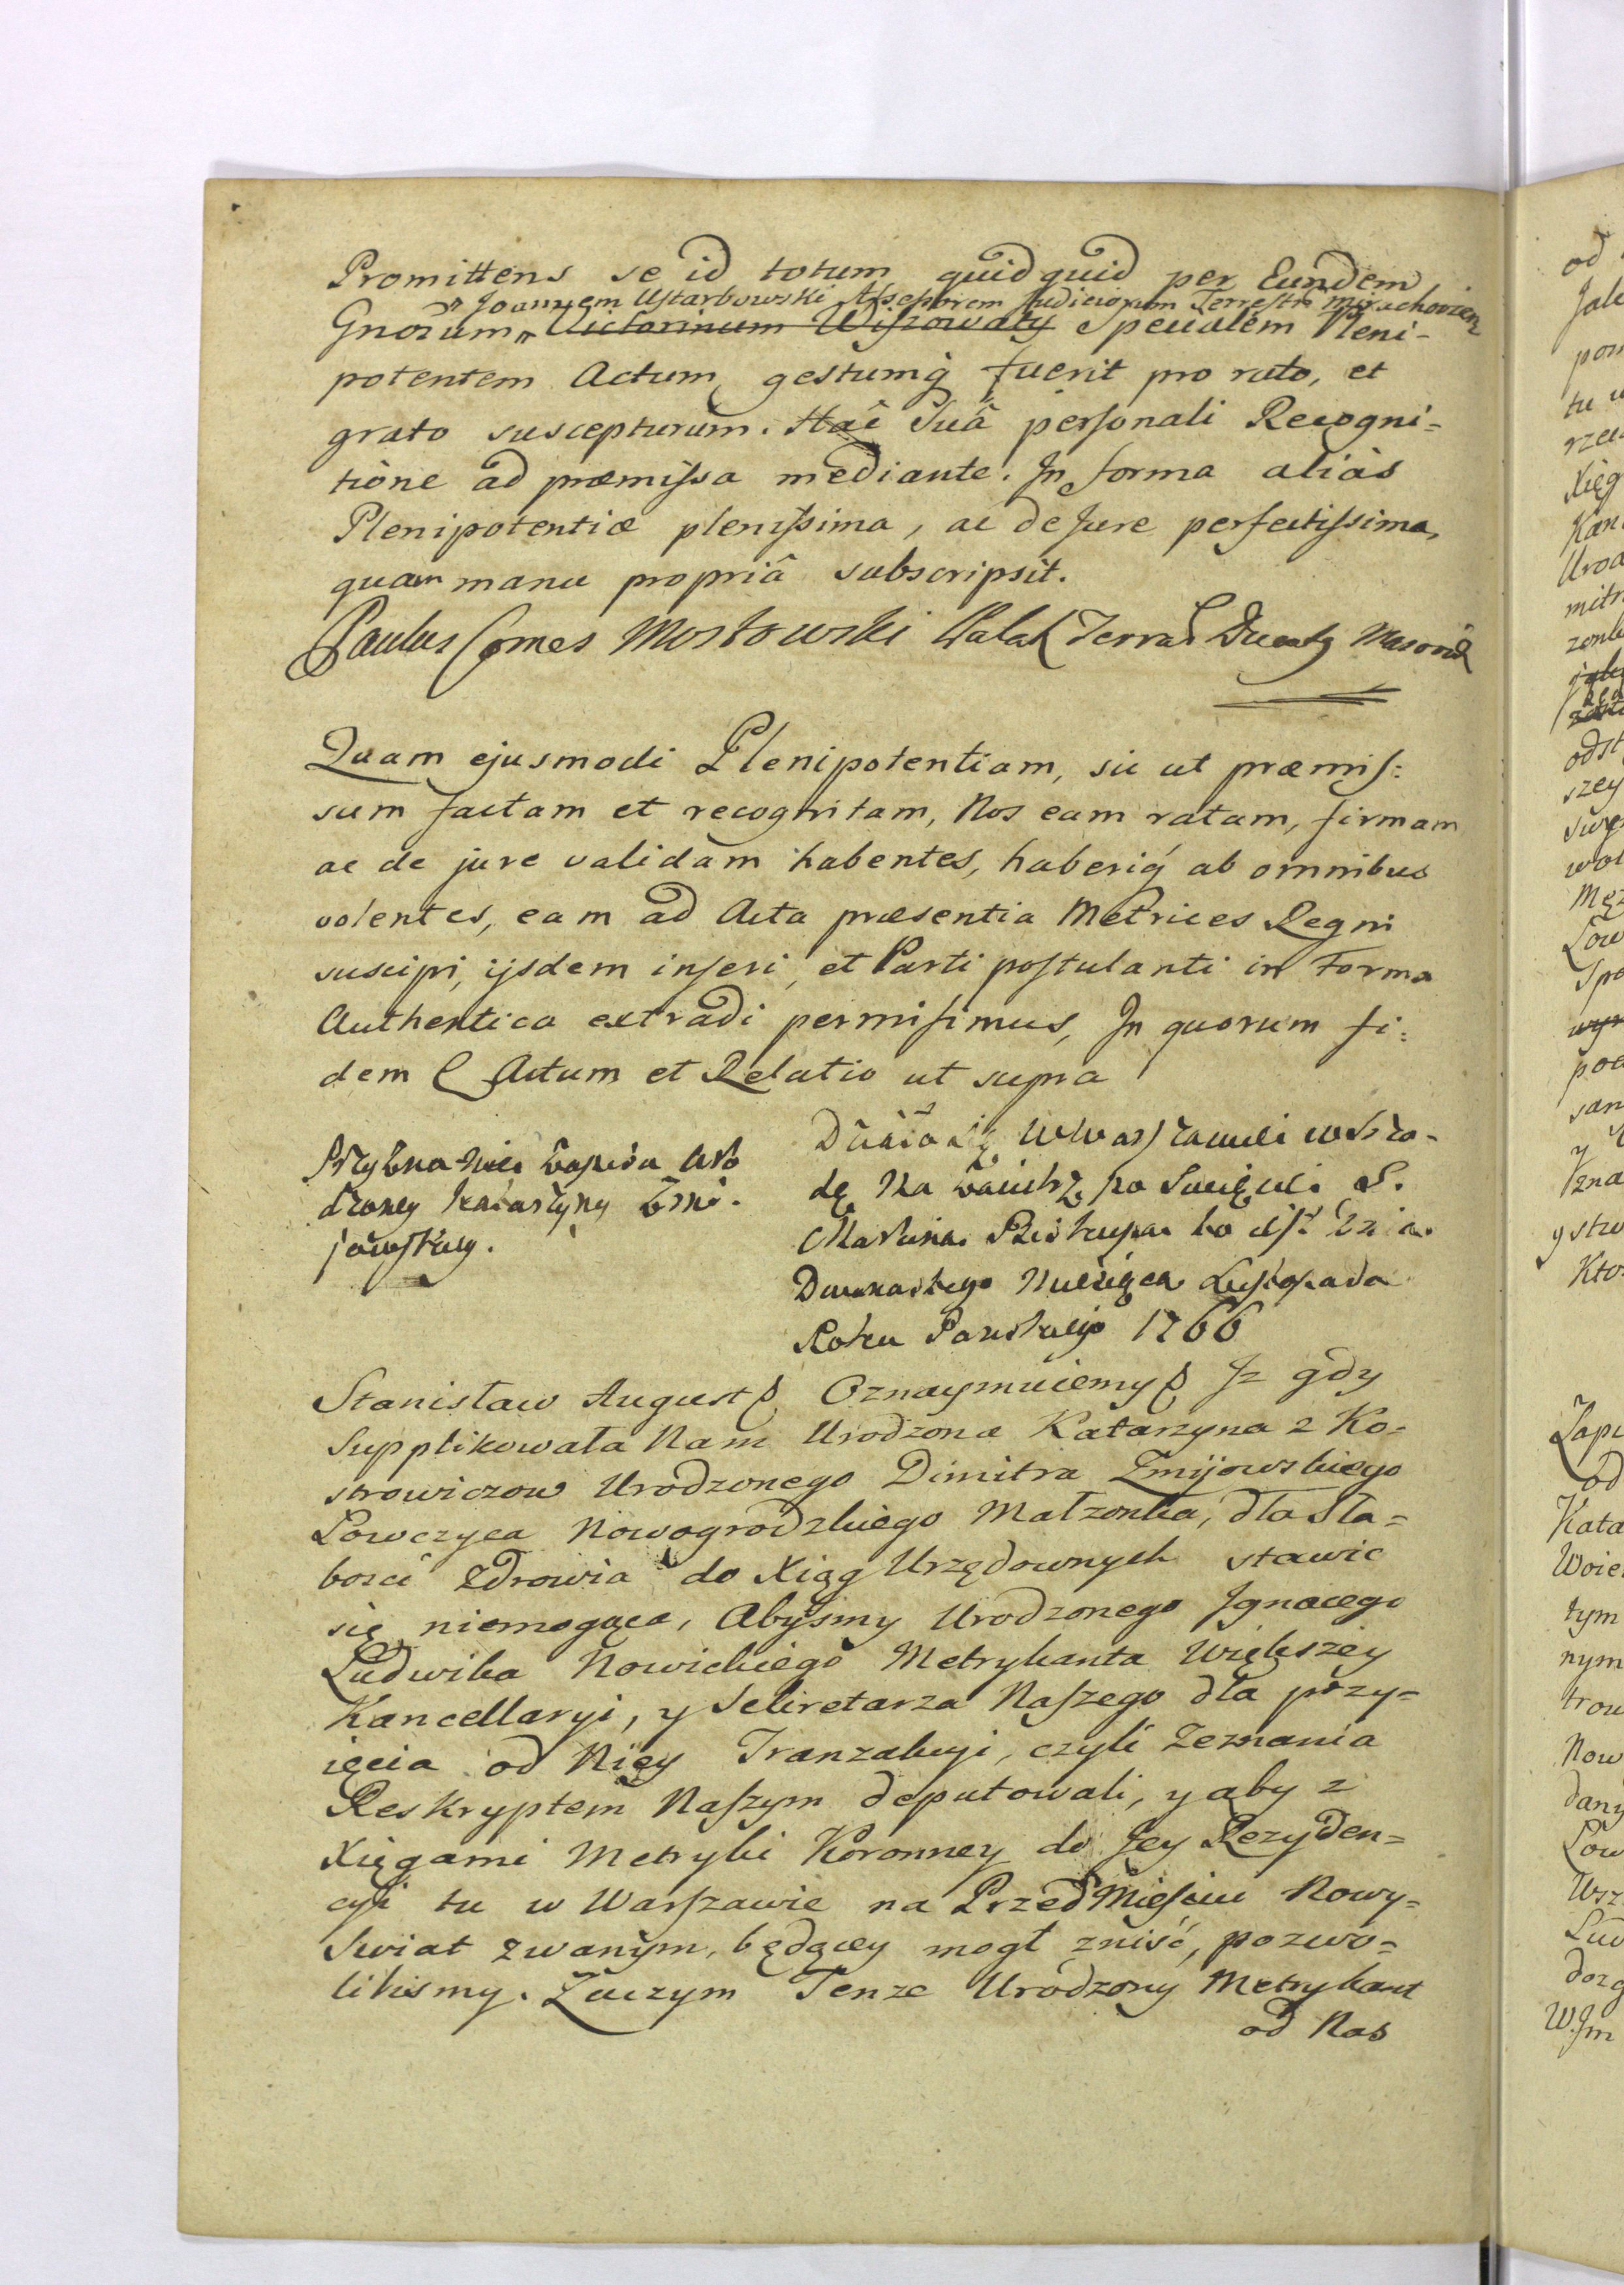 Promittens se id totum quidquid per Eundem
" Joannem Ustarbowski Assessorem Judiciorum Terrestr Mirachovien
Gnosum " Victorinum Wiszowaty Specialem Pleni-
potentem Actum gestumq̀ fuerit pro rato, et
grato suscepturum. Hac Suâ personali Recogni=
tione ad præmissa mediante. In forma alias
Plenipotentiæ plenissima, ac de Jure perfectissima,
quam manu propriâ subscripsit.
Paulus Comes Mostowski Palat Terrar Ducatg Masoviæ
Quam ejusmodi Plenipotentiam, sic ut præmis:
sum factam et recognitam, Nos eam ratam, firmam
ac de jure validam habentes, haberiq́ ab omnibus
volentes, eam ad Acta præsentia Metrices Regni
suscipi, ijsdem inseri, et Parti postulanti in Forma
Authentica extradi permisimus, In quorum fi:
dem Actum et Relatio ut supra
Przyznanie Zapisu Uro
dzoney Katarzyny Żmi-
jowskiey.
Działo się w Warszawie w Szro-
dę Na Zaiutrz po Święcie S.
Marcina Biskupa to jest Dnia
Dwunastego Miesiąca Listopada
Roku Pańskiego 1766
Stanisław August Oznaymuiemy Iz gdy
Supplikowała Nam Urodzona Katarzyna z Ko-
strowiczow Urodzonego Dimitra Zmijowskiego
Łowczyca Nowogrodzkiego Małzonka, dla Sła=
bosci Zdrowia do Xiąg Urzędownych stawic
się niemogąca, Abysmy Urodzonego Ignacego
Ludwika Nowickiego Metrykanta Większey
Kancellaryi, y Sekretarza Naszego dla przy=
ięcia od Niey Tranzakcyi, czyli Zeznania
Reskryptem Naszym deputowali, y aby z
Xięgami Metryki Koronney do Jey Rezyden=
cyi tu w Warszawie na PrzedMieściu Nowy=
Swiat zwanym, będącey mogł zniść, pozwo=
lilismy. Zaczym Tenze Urodzony Metrykant
od Nas